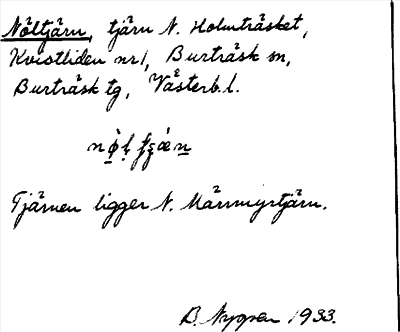 Nöltjärn, tjärn N. Holmträsket,
Kvistliden nr 1, Burträsk sn,
Burträsk tg, Västerb. l.
Tjärnen ligger N. Mårrmyrtjärn.
B. Nygren 1933.